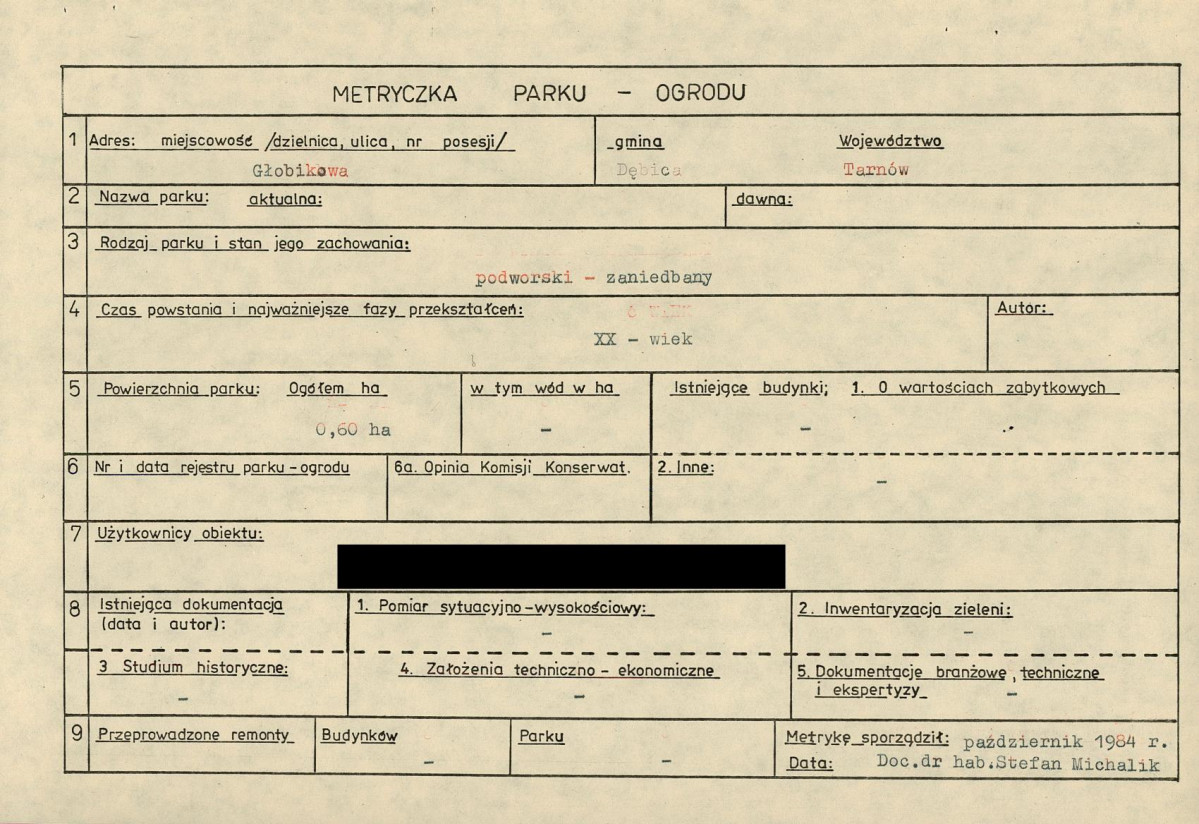 METRYCZKA PARKU - OGRODU
1 Adres: miejscowość /dzielnica, ulica, nr posesji/ gmina Województwo
Głobikowa Dębica Tarnów
2 Nazwa parku: aktualna: dawna:
3 Rodzaj parku i stan jego zachowania:
podworski - zaniedbany
4 Czas powstania i najważniejsze fazy przekształceń: Autor:
XX - wiek
5 Powierzchnia parku: Ogółem ha w tym wód w ha Istniejące budynki; 1. O wartościach zabytkowych
0,60 ha - -
6 Nr i data rejestru parku - ogrodu 6a. Opinia Komisji Konserwat. 2. Inne:
-
7 Użytkownicy obiektu:
8 Istniejąca dokumentacja 1. Pomiar sytuacyjno - wysokościowy: 2. Inwentaryzacja zieleni:
(data i autor): - -
3 Studium historyczne: 4. Założenia techniczno - ekonomiczne 5. Dokumentacje branżowe, techniczne
- - i ekspertyzy -
9 Przeprowadzone remonty Budynków Parku Metrykę sporządził: październik 1984 r.
- - Data: Doc.dr hab.Stefan Michalik